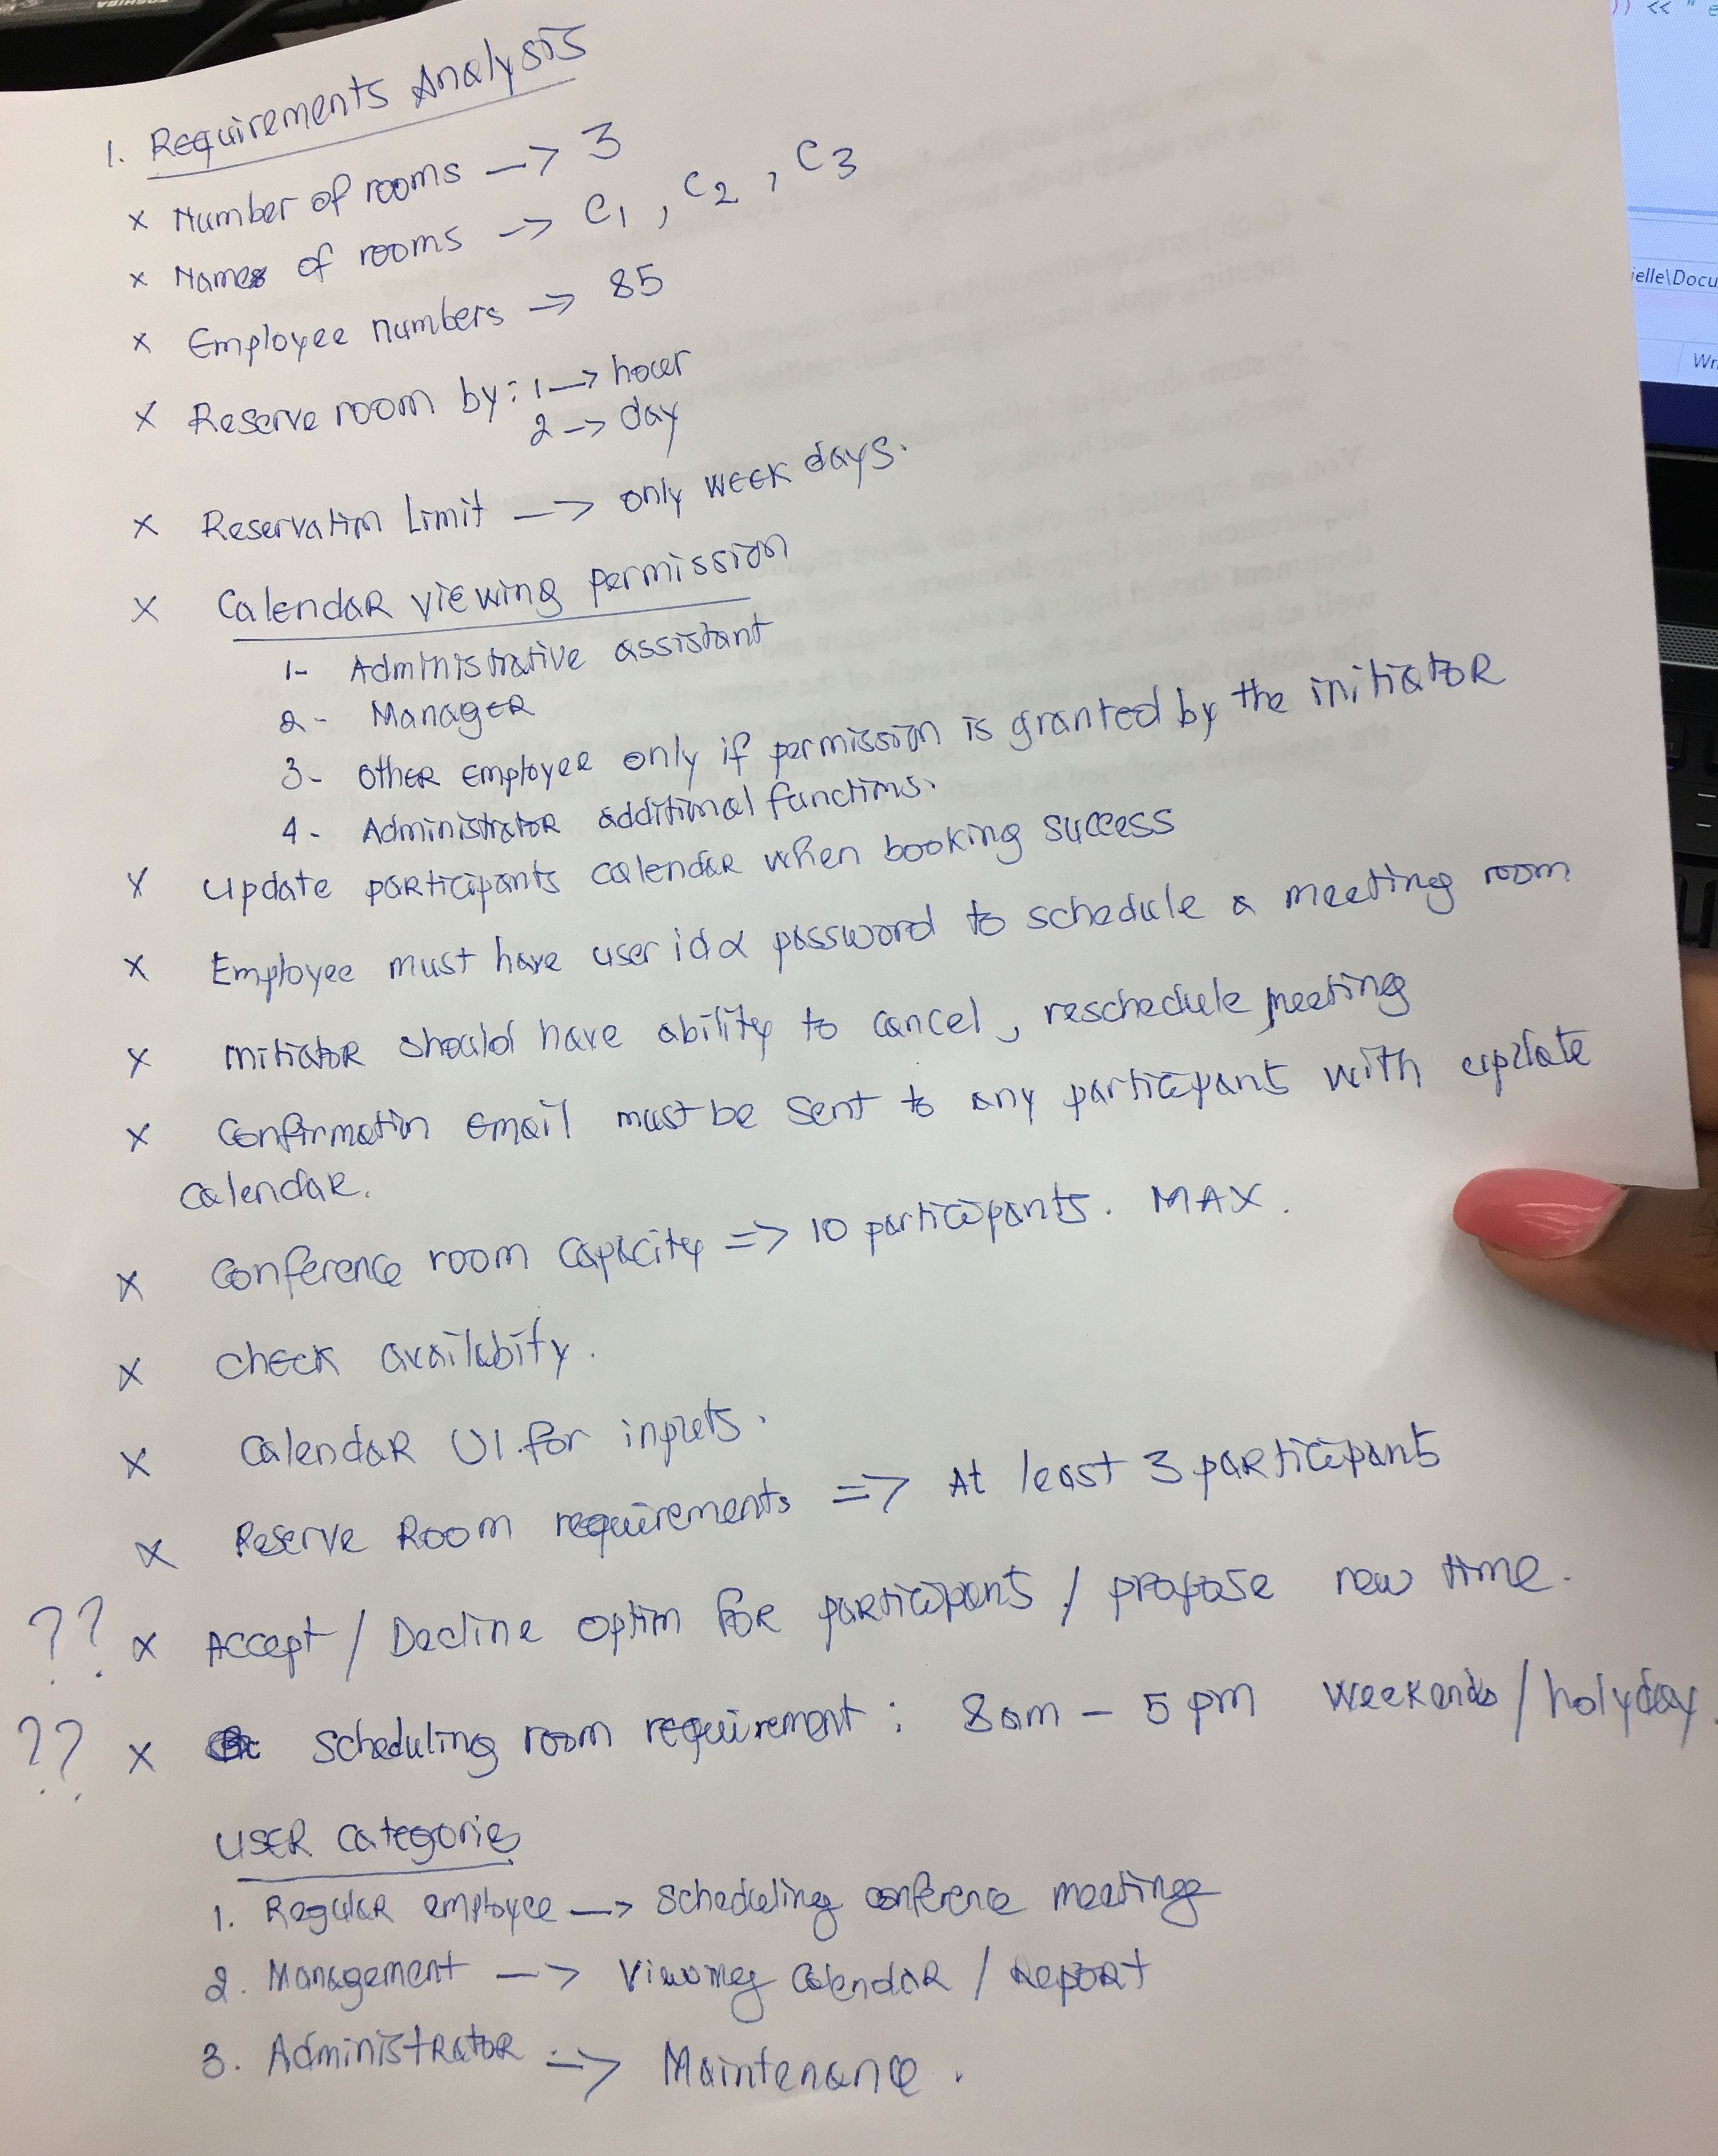 TOSHIBA
)) << " e
1. Requirements Analysis
x Number of rooms --> 3
x Names of rooms --> C1, C2, C3
ielle\Docu
x Employee numbers --> 85
Wri
x Reserve room by: 1 --> hour
2 --> day
x Reservation Limit --> only week days.
x Calendar viewing permission
1- Administrative assistant
2- Manager
3- Other employee only if permission is granted by the initiator
4- Administrator additional functions.
x Update participants calendar when booking success
x Employee must have user id & password to schedule a meeting room
x initiator should have ability to cancel, reschedule meeting
x Confirmation email must be sent to any participants with update
calendar.
x Conference room capacity => 10 participants. MAX.
x check availabity.
x Calendar UI for inputs.
x Reserve Room requirements => At least 3 participants
?? x Accept / Decline option for participants / propose new time.
?? x Scheduling room requirement: 8am - 5pm weekends / holyday.
User Categories
1. Regular employee --> Scheduling conference meetings
2. Management --> Viewing Calendar / Report
3. Administrator --> Maintenance.